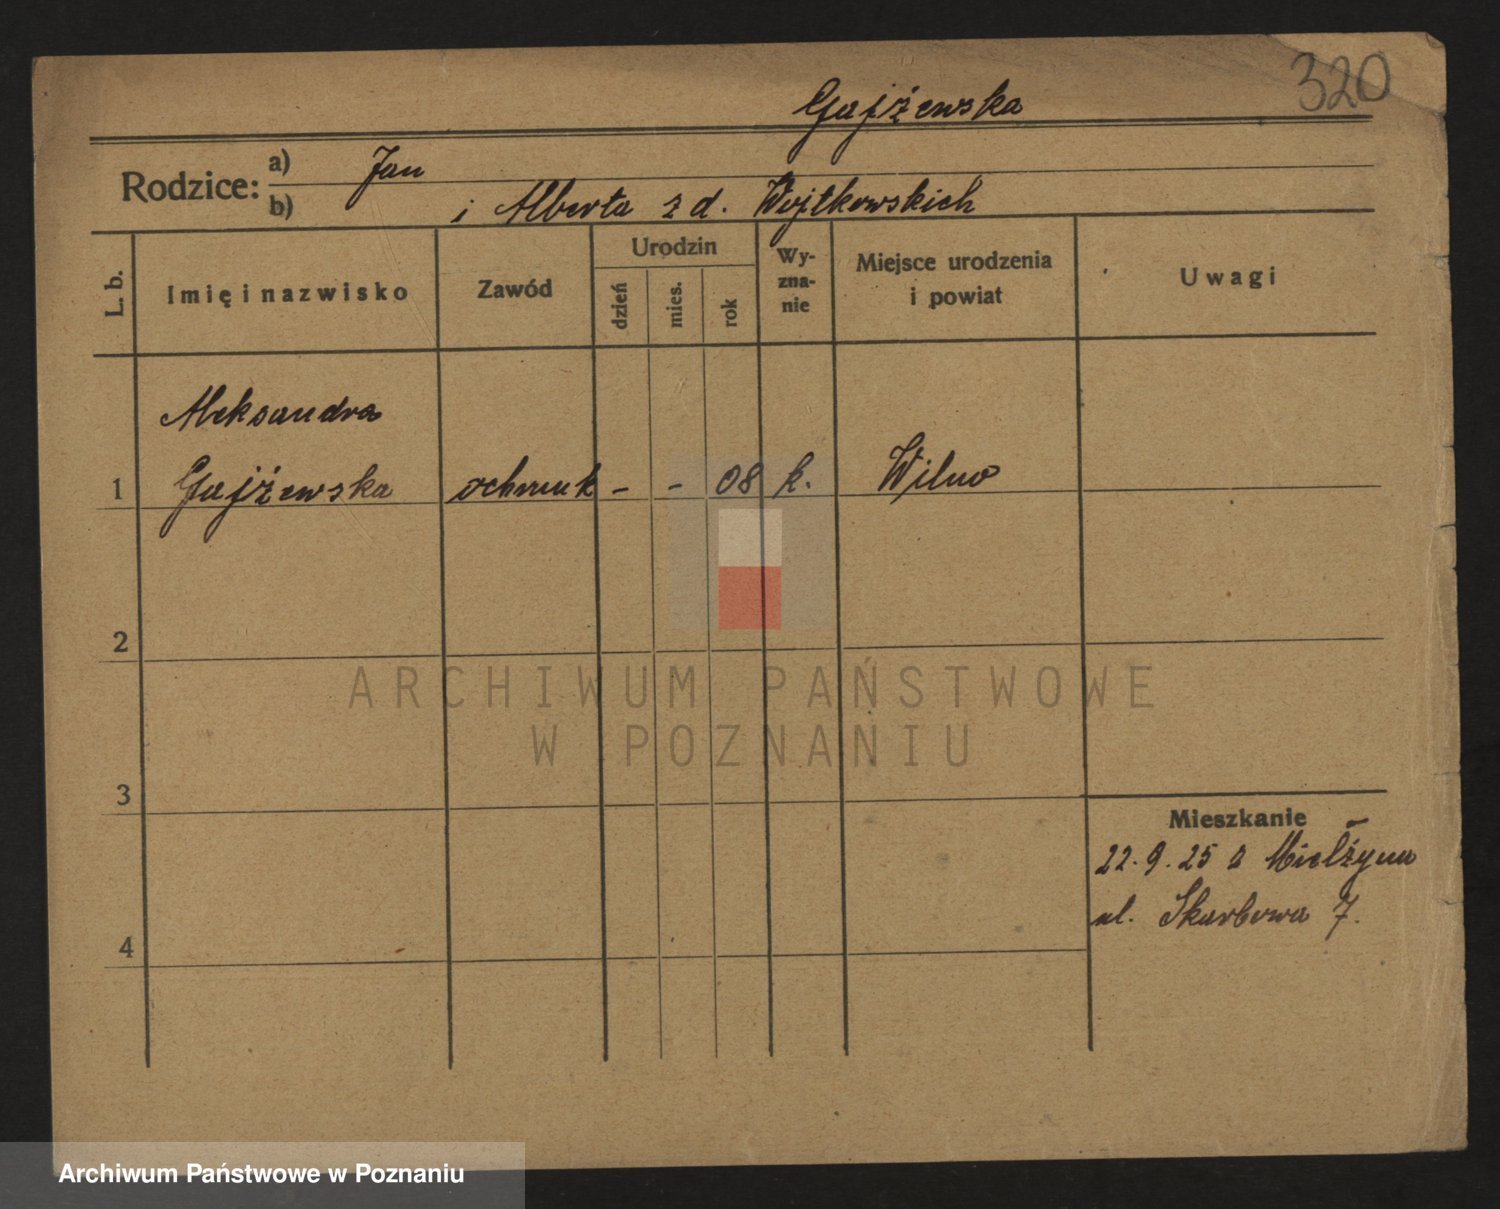 320
Gajżewska
Rodzice: a) Jan
b) i Alberta z d. Wojtkowskich
L. b. Imię i nazwisko Zawód Urodzin dzień mies. rok Wyznanie Miejsce urodzenia i powiat Uwagi
Aleksandra
1 Gajżewska - - 08 k. Wilno
2
3
Mieszkanie
22.9.25 z Mielżyna
ul. Skarbowa 7.
4
ARCHIWUM PAŃSTWOWE
W POZNANIU
Archiwum Państwowe w Poznaniu